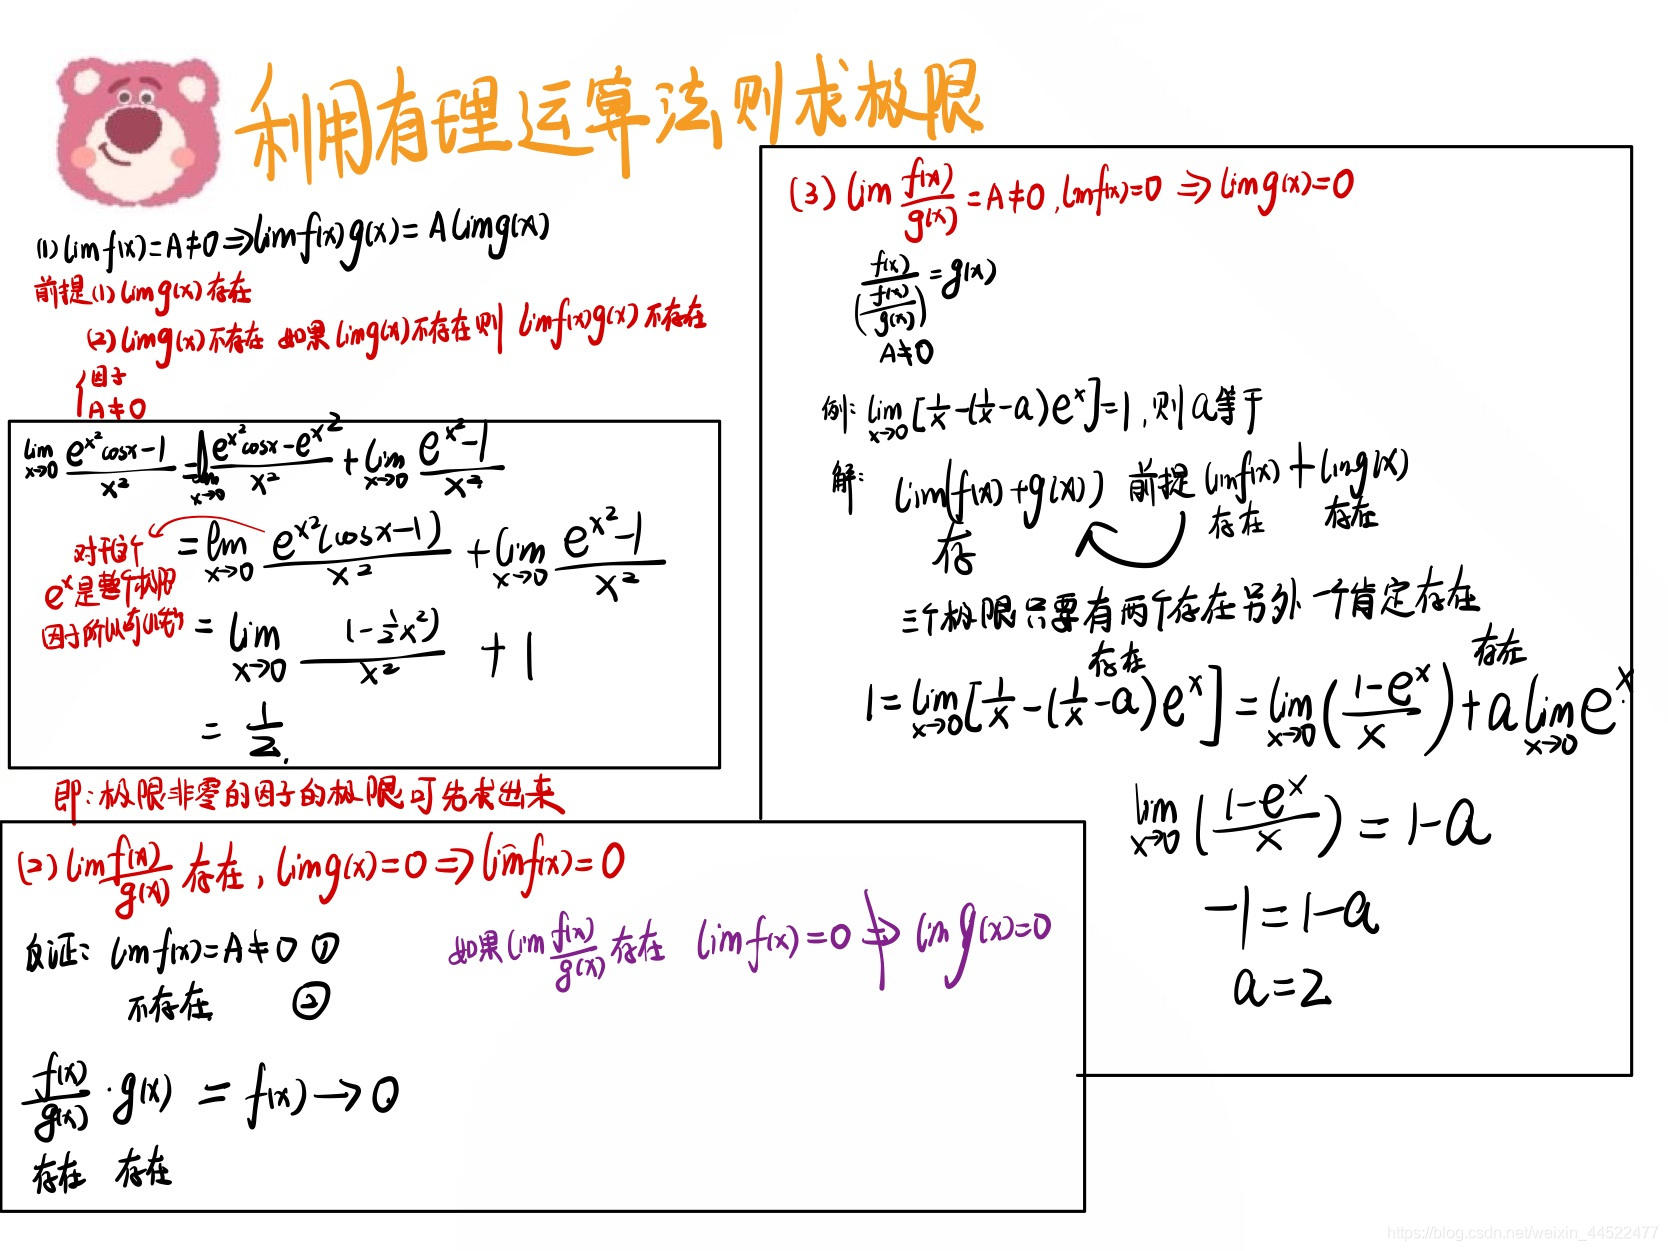 利用有理运算法则求极限
(1) lim f(x) = A ≠ 0 ⇒ lim f(x) g(x) = A lim g(x)
前提(1) lim g(x) 存在
(2) lim g(x) 不存在 如果 lim g(x) 不存在则 lim f(x) g(x) 不存在
{因子
A ≠ 0
lim x→0 (e^(x²) cosx - 1)/x² = lim x→0 (e^(x²) cosx - e^(x²))/x² + lim x→0 (e^(x²) - 1)/x²
= lim x→0 e^(x²)(cosx - 1)/x² + lim x→0 (e^(x²) - 1)/x²
对于这个
e^x 是整个极限
因子所以可以先
= lim x→0 (1 - ½x²)/x² + 1
= 1/2.
即：极限非零的因子的极限可先求出来
(2) lim f(x)/g(x) 存在, lim g(x) = 0 ⇒ lim f(x) = 0
反证: lim f(x) = A ≠ 0 ①
不存在 ②
如果 lim f(x)/g(x) 存在 lim f(x) = 0 ⇏ lim g(x) = 0
f(x)/g(x) · g(x) = f(x) → 0
存在 存在
(3) lim f(x)/g(x) = A ≠ 0, lim f(x) = 0 ⇒ lim g(x) = 0
f(x)/(f(x)/g(x)) = g(x)
A ≠ 0
例: lim x→0 [1/x - (1/x - a) e^x] = 1, 则 a 等于
解: lim(f(x) + g(x)) 前提 lim f(x) + lim g(x)
存 存在 存在
三个极限只要有两个存在另外一个肯定存在
存在 存在
1 = lim x→0 [1/x - (1/x - a) e^x] = lim x→0 ((1 - e^x)/x) + a lim x→0 e^x
lim x→0 ((1 - e^x)/x) = 1 - a
-1 = 1 - a
a = 2
https://blog.csdn.net/weixin_44522477